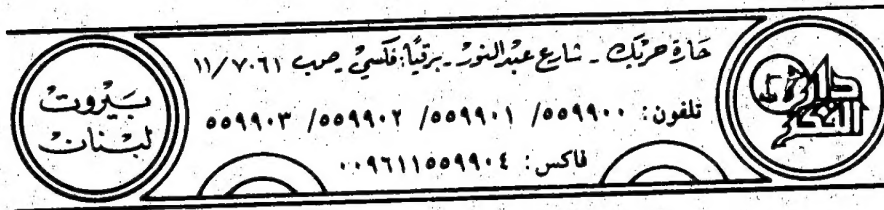 دار الفكر
حَارَة حرَيك ـ شارع عَبْد النور ـ برقيًّا: فَكسيْ ـ صَب ١١/٧٠٦١
تلفون: ٥٥٩٩٠٠/ ٥٥٩٩٠١/ ٥٥٩٩٠٢/ ٥٥٩٩٠٣
فاكس: ٠٠٩٦١١٥٥٩٩٠٤
بَيْروت
لبْنان